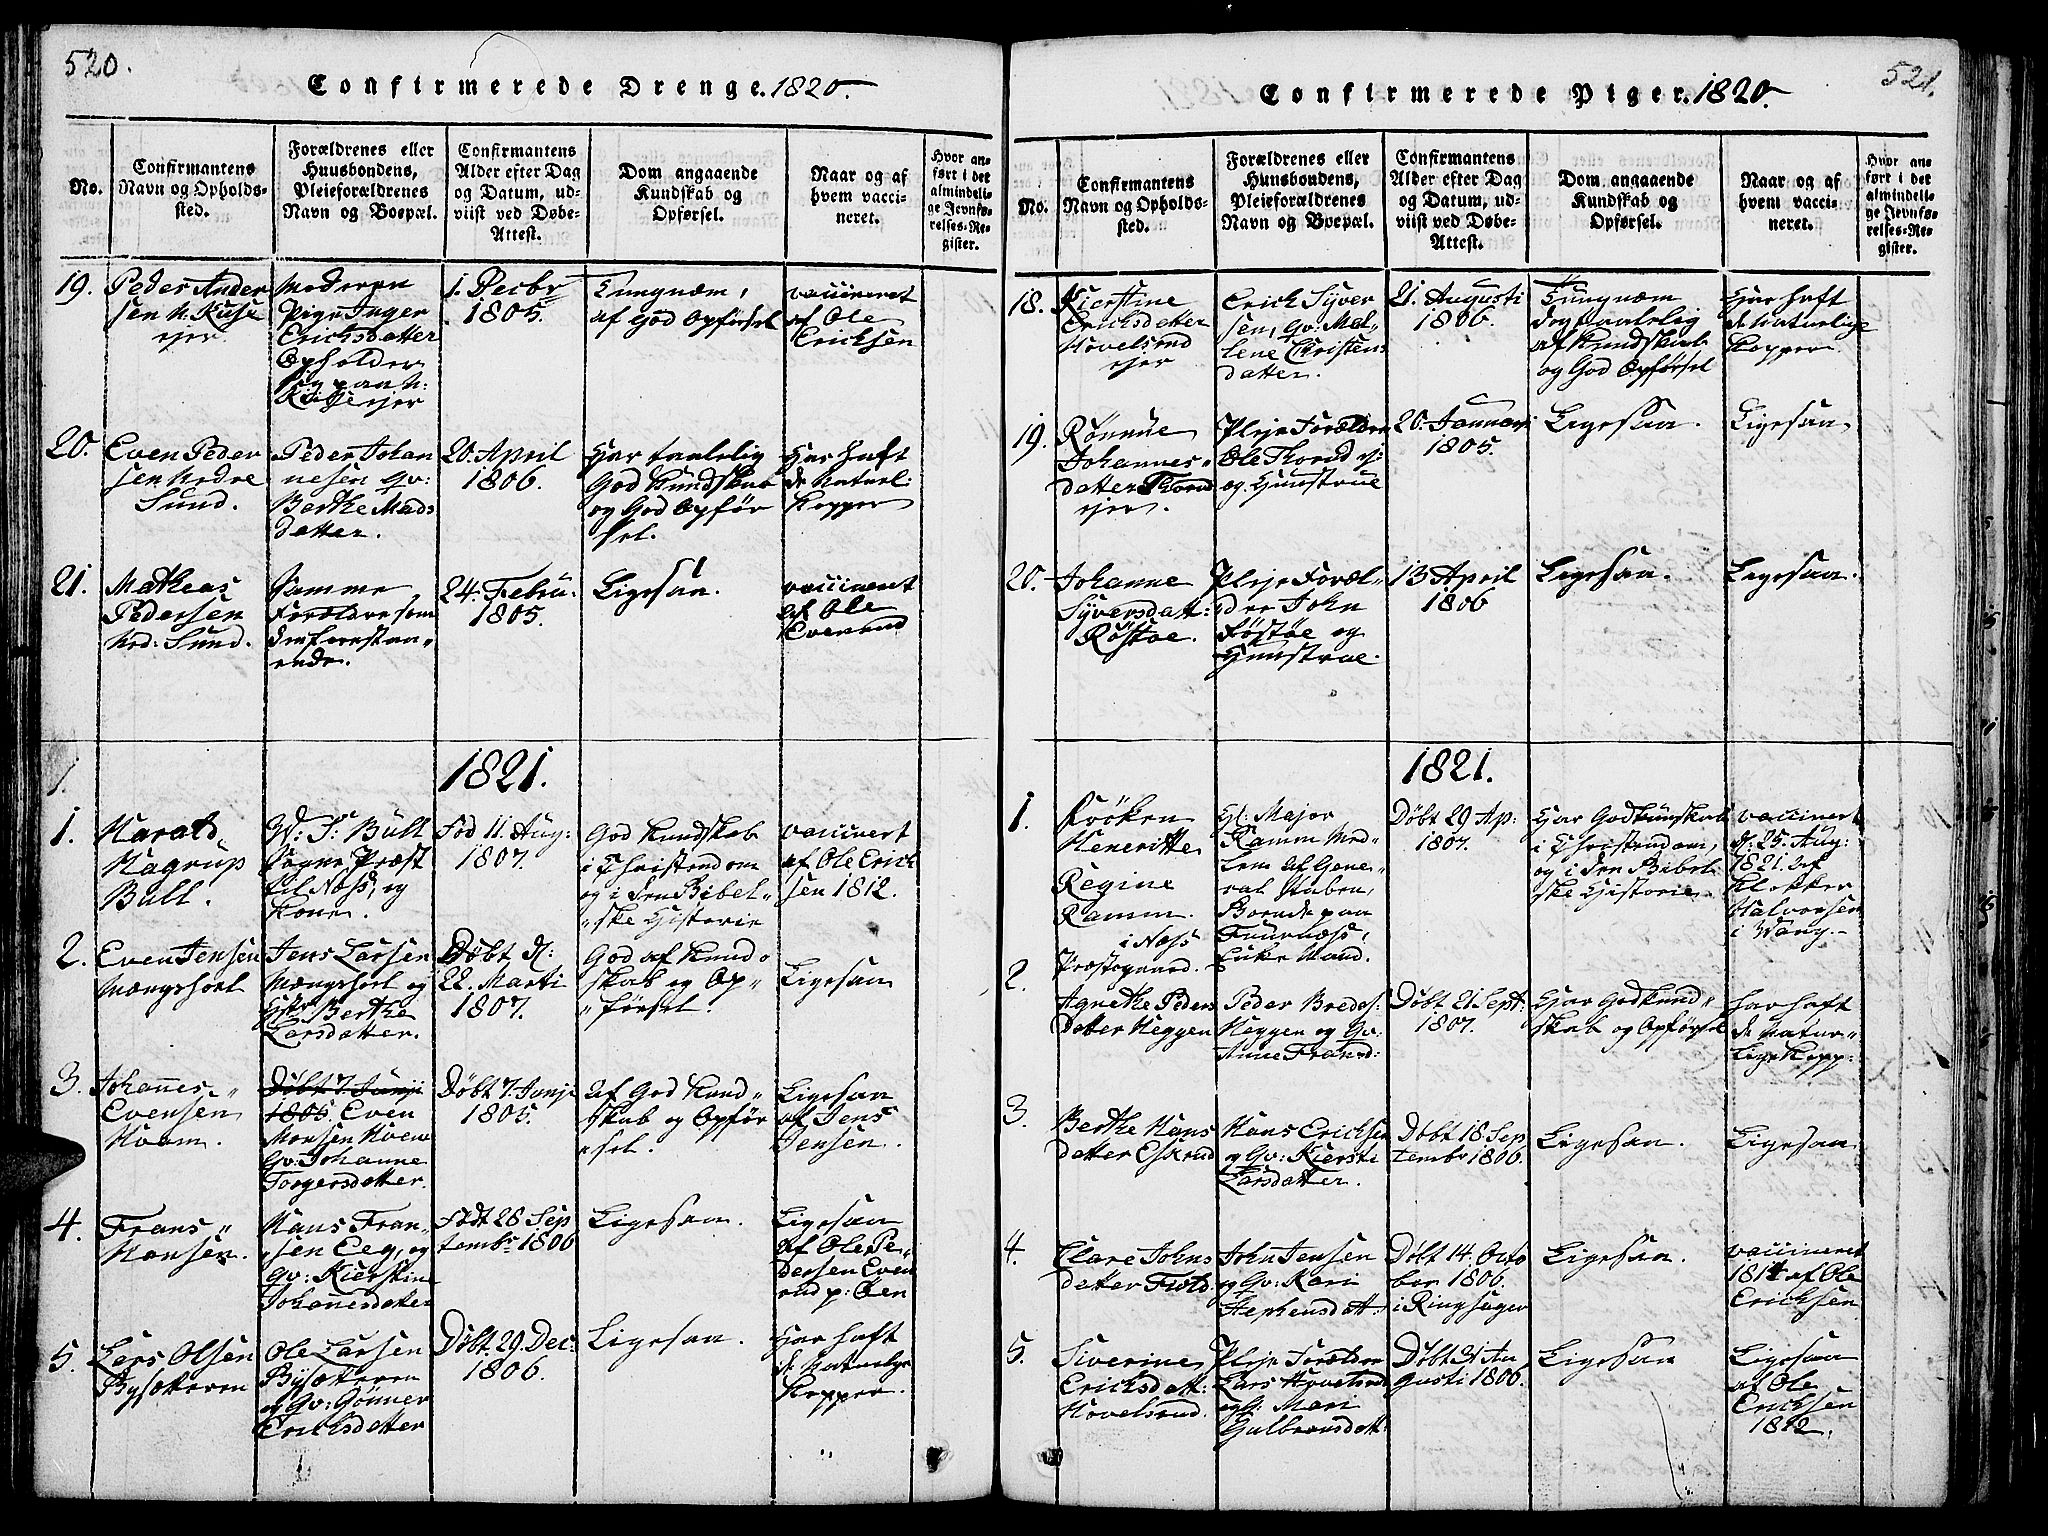 520.
Confirmerede Drenge. 1820.
No.
Confirmantens
Navn og Opholds-
sted.
Forældrenes eller
Huusbondens,
Pleieforældrenes
Navn og Boepæl.
Confirmantens
Alder efter Dag
og Datum, ud-
viist ved Døbe-
Attest.
Dom angaaende
Kundskab og
Opførsel.
Naar og af
hvem vacci-
neret.
Hvor an-
ført i det
almindeli-
ge Jevnfø-
relses-Re-
gister.
19.
Peder Ander
sen N: Kise
ejer
Moderen
Pige Inger
Ericksdatter
Opholder
sig paa N:
Kise ejer
1. Decbr
1805.
Tungnæm,
af God Opførsel
vaccineret
af Ole
Ericksen
20.
Even Peder
sen Nedre
Sund.
Peder Johan
nesen Gv:
Berthe Mads
datter.
20. April
1806.
Har taalelig
God Kundskab
og God Opfør
sel.
Har haft
de Naturl:
Kopper
21.
Matheas
Pedersen
Ned: Sund.
Samme
Forældre som
den forestaa„
ende.
24. Febru:
1805.
Ligesaa.
vaccineret
af Ole
Evenrud
1821.
1.
1.
Harald
Hagrup
Bull.
G: F: Bull
Sogne Præst
til Næss, og
Kone.
Fød 11. Aug:
1807.
God Kundskab
i Christendom
og i den Bibel„
„ske Historie
vaccinert
af Ole Erick
sen 1812.
2.
Even Jensen
Mængshoel
Jens Larsen
Mængshoel og
Hstr Berthe
Larsdatter.
Døbt d:
22. Marti
1807.
God af Kund„
skab og Op„
„førsel.
Ligesaa
3.
Johannes„
Evensen
Hvam.
Døbt 7. Junji
1805 Even
Monsen Hvam
Gv: Johanne
Torgersdatter.
Døbt 7. Junji
1805.
af God Kund„
skab og Opfør
„sel.
Ligesaa
af Jens
Jensen.
4.
Frans„
Hansen.
Hans Fran„
sen Eeg, og
Gv: Kierstine
Johannesdatter
Født 28 Sep
tembr 1806
Ligesaa.
Ligesaa
af Ole Pe„
dersen Even
rud p: Øen
5.
Lars Olsen
Bysætteren
Ole Larsen
Bysætteren
og Gv: Gønner
Ericksdatter
Døbt 29. Dec:
1806.
Ligesaa.
Har haft
de Naturlige
Kopper.
521.
Confirmerede Piger. 1820.
No.
Confirmantens
Navn og Opholds-
sted.
Forældrenes eller
Huusbondens,
Pleieforældrenes
Navn og Boepæl.
Confirmantens
Alder efter Dag
og Datum, ud-
viist ved Døbe-
Attest.
Dom angaaende
Kundskab og
Opførsel.
Naar og af
hvem vacci-
neret.
Hvor an-
ført i det
almindeli-
ge Jevnfø-
relses-Re-
gister.
18.
Kierstine
Ericksdatter
Hovelsrud
ejer
Erick Syver
sen, Gv: Mal„
lene Christens
datter.
21. Augusti
1806.
Tungnæm
dog taalelig
af Kundskab
og God Opførsel
Har haft
de Naturlige
Kopper.
19.
Rønnue
Johannes„
datter Thorud
ejer.
Pleje Forældre
Ole Thorud ej:
og Huustrue
20. Januari
1805.
Ligesaa.
Ligesaa.
20.
Johanne
Syversdatt:
Røstøe.
Pleje Foræl„
dre John
Røstøe og
Huustrue.
13 April
1806
Ligesaa.
Ligesaa.
1821.
1.
Frøken
Henritte
Regine
Ramm.
i Næss
Præstegaard.
Hl. Major
Ramm Med
lem af Gene
ral Staben,
Boende paa
Fuurnæss,
Enke Mand.
Døbt 29 Ap:
1807.
Har God Kunskab
i Christendom,
og i den Bibel„
ske Historie
vaccinert
d: 25. Aug:
1821. af
Klokker
Halvorsen
i Vang.
2.
Agnethe Peders
datter Heggen
Peder Bredes:
Heggen og Gv:
Anne Fransd:
Døbt 21 Sept:
1807.
Har God Kund„
skab og Opførsel
har haft
de Natur„
lige Kopp:
3.
Berthe Hans
datter Eskrud
Hans Ericksen
og Gv: Kiersti
Larsdatter.
Døbt 18. Sep
tembr 1806.
Ligesaa.
Ligesaa.
4.
Clare Johns
datter Fiold
John Jensen
og Gv: Kari
Stephensdatt:
Døbt 14. Octo
ber 1806.
i Ringsager
Ligesaa.
vaccineret
1814 af Ole
Ericksen
5.
Siverine
Ericksdatt:
Hovelsrud.
Pleje Forældre
Lars Hovelsrud
og Gv: Mari
Gulbransdatt:
Døbt 31 Au
gusti 1806.
Ligesaa
Ligesaa
af Ole
Ericksen
1812.